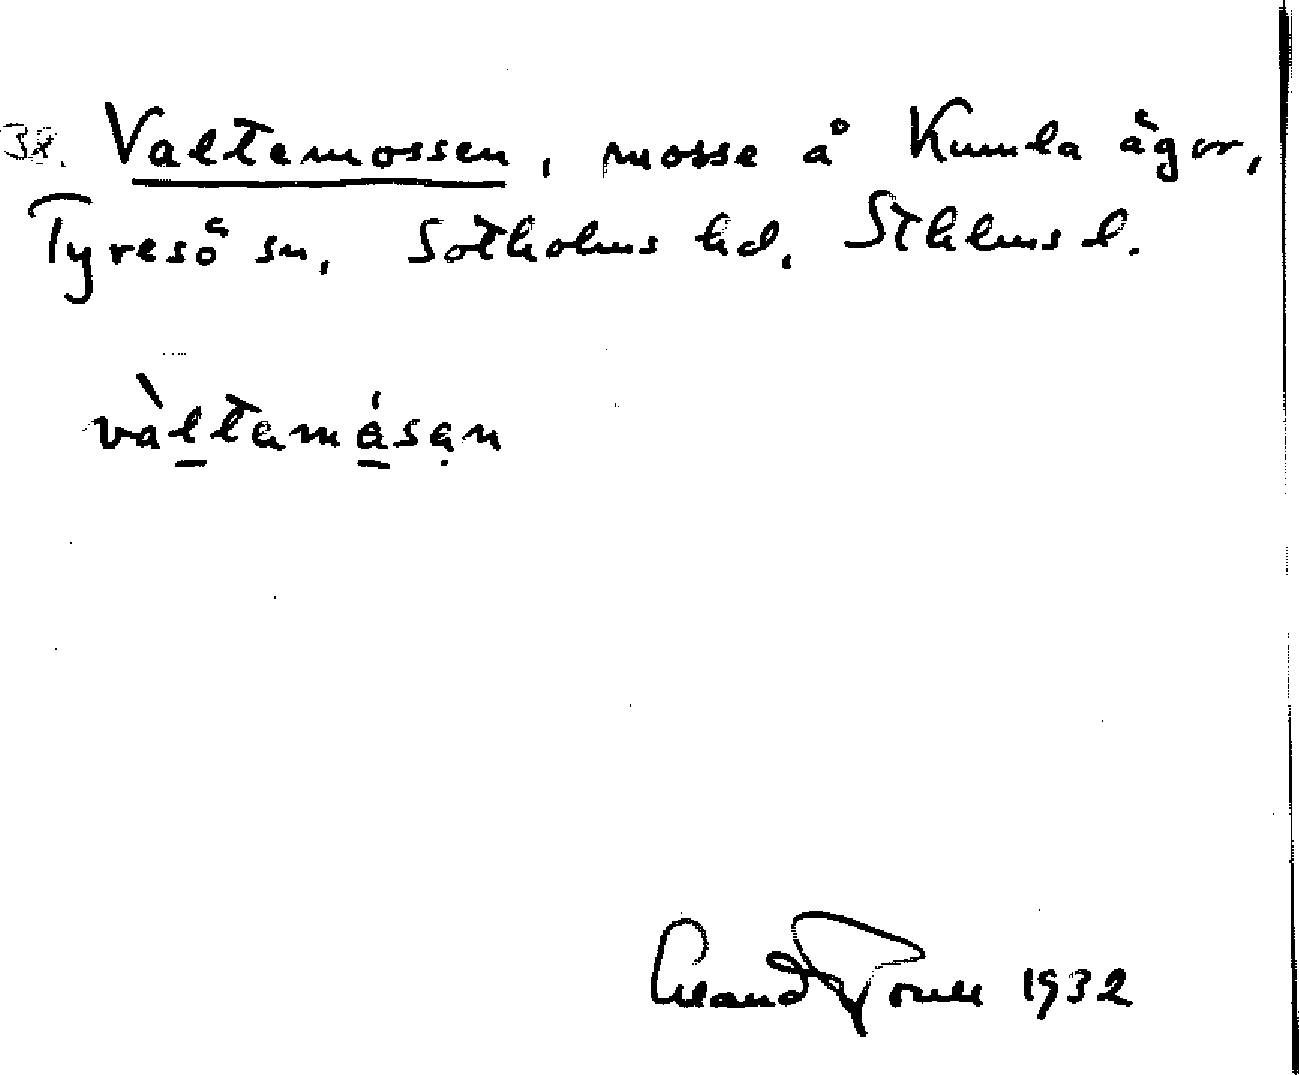 38. Valtemossen, mosse å Kumla ägor,
Tyresö sn, Sotholms hd, Sthlms l.
vàltamåsan
1932